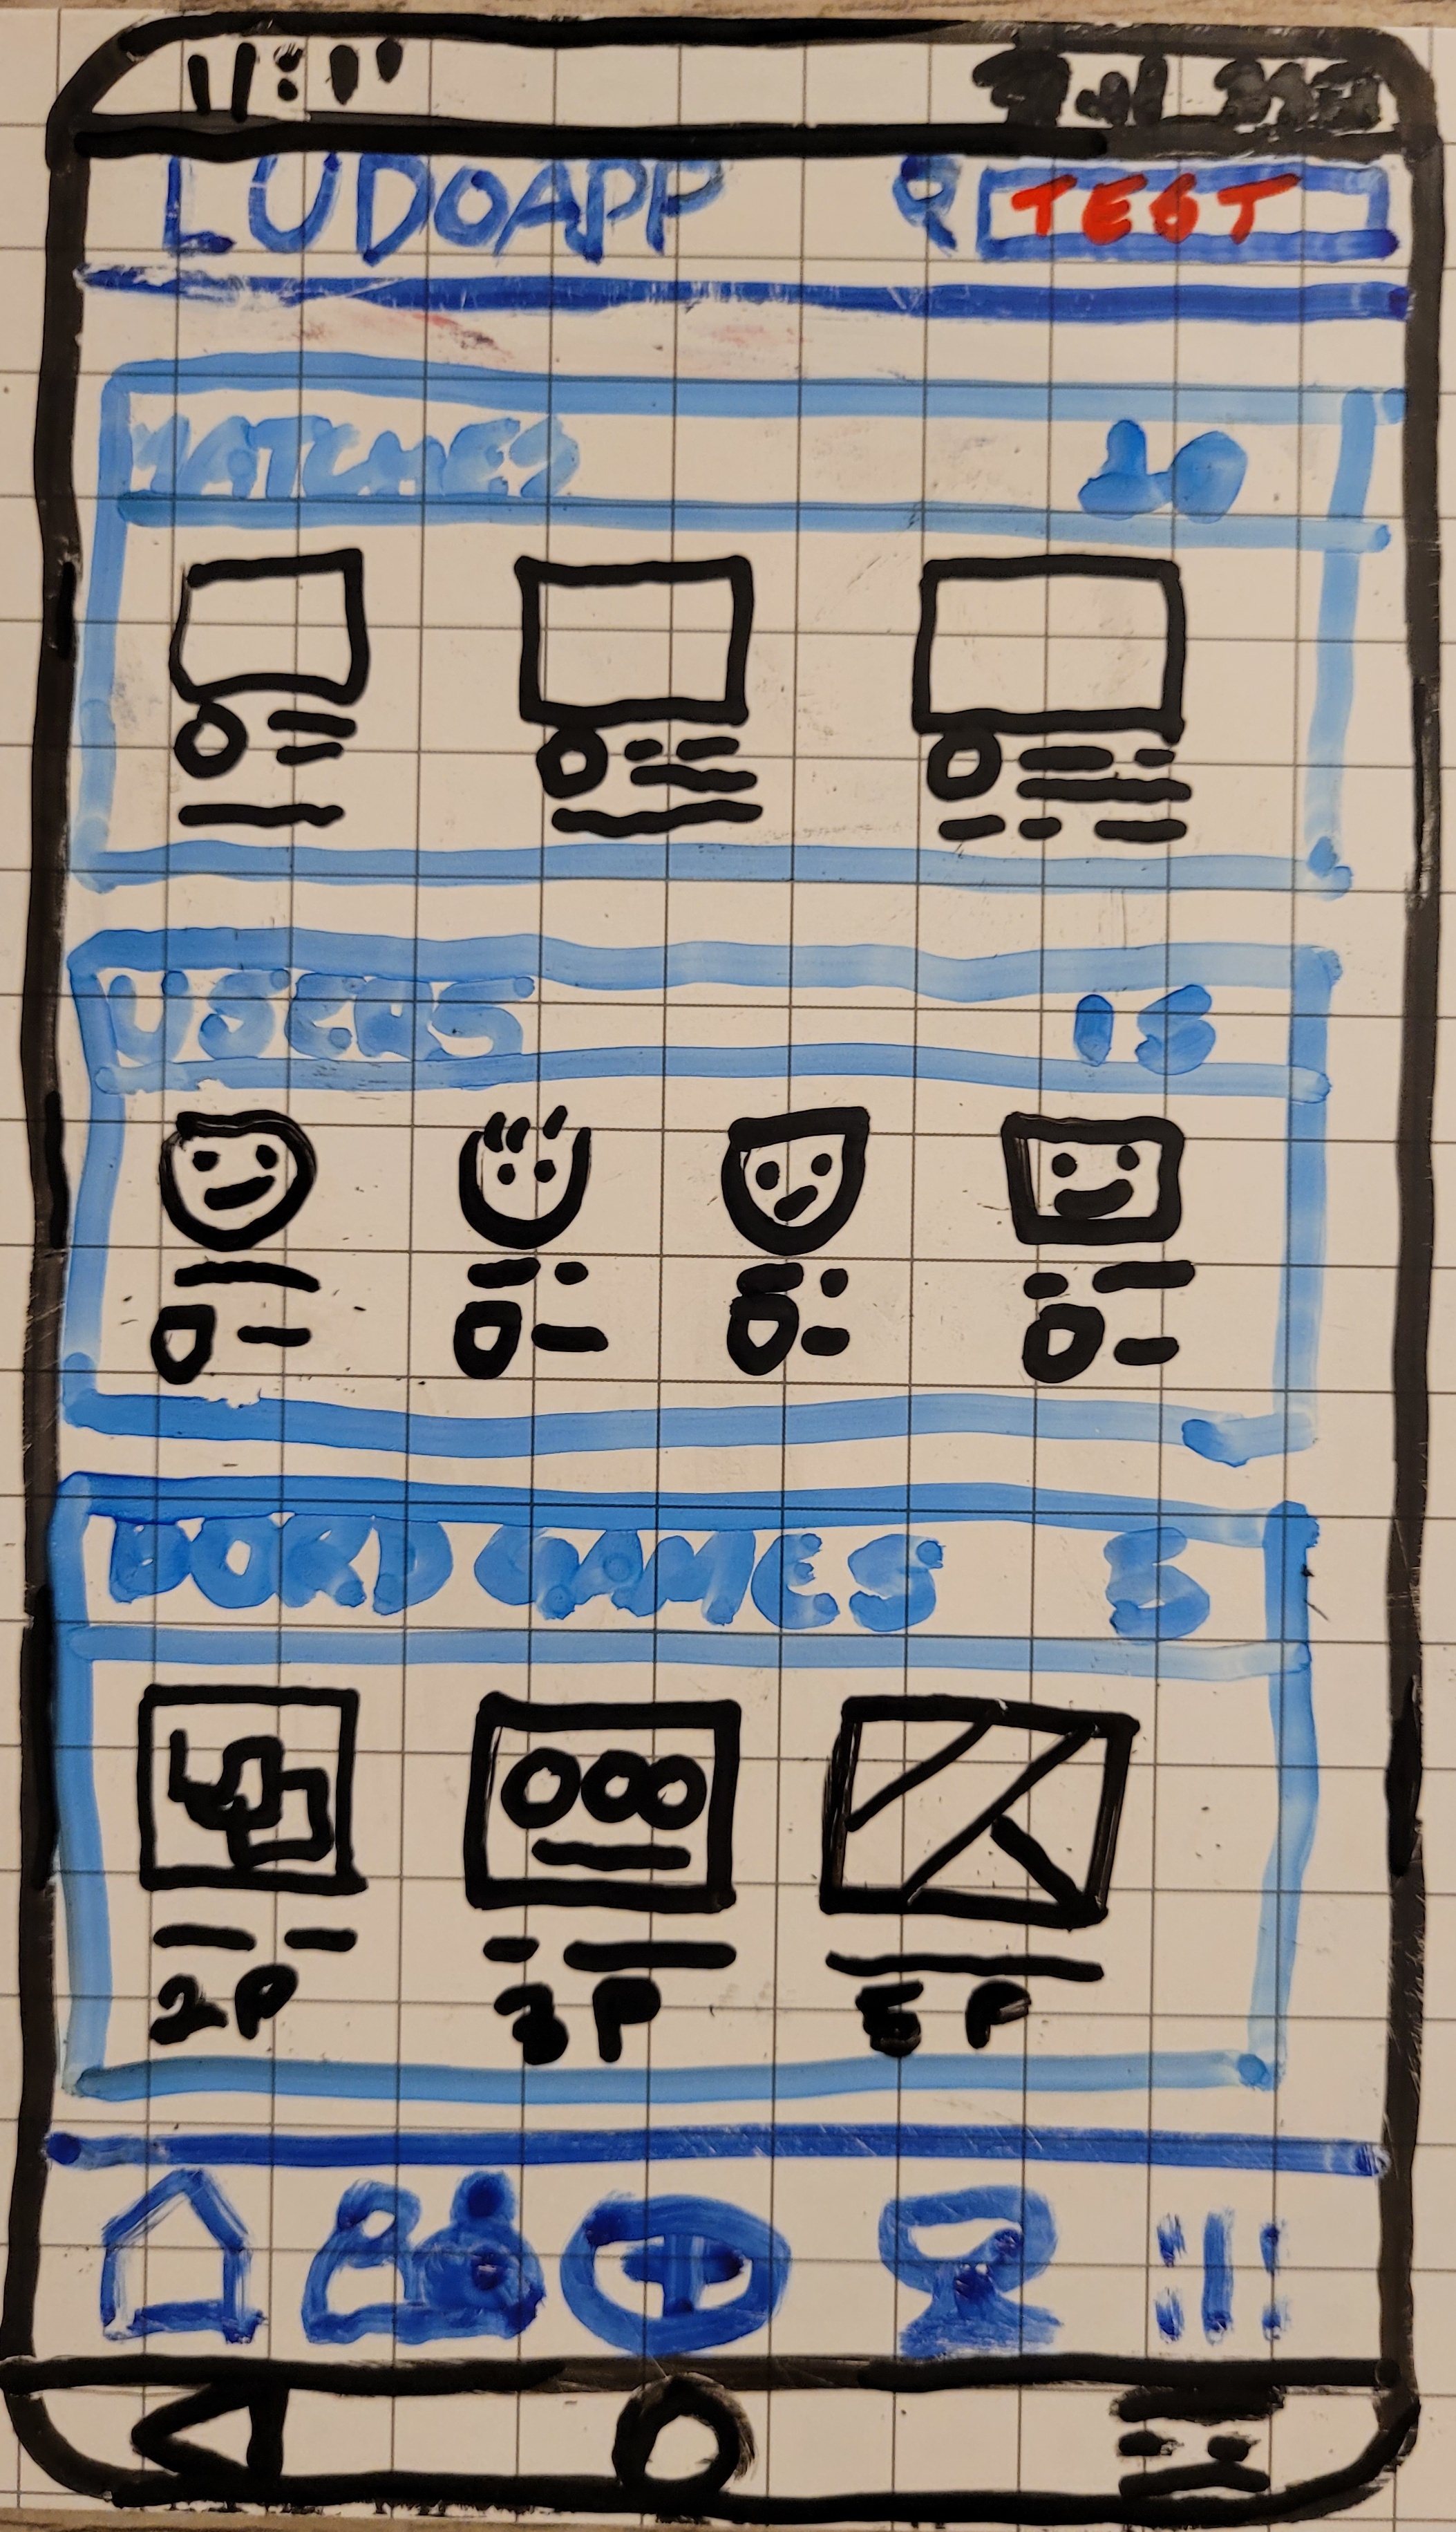 11:11
LUDOAPP TEST
MATCHES 10
USERS 15
BORD GAMES 5
2P 3P 5P